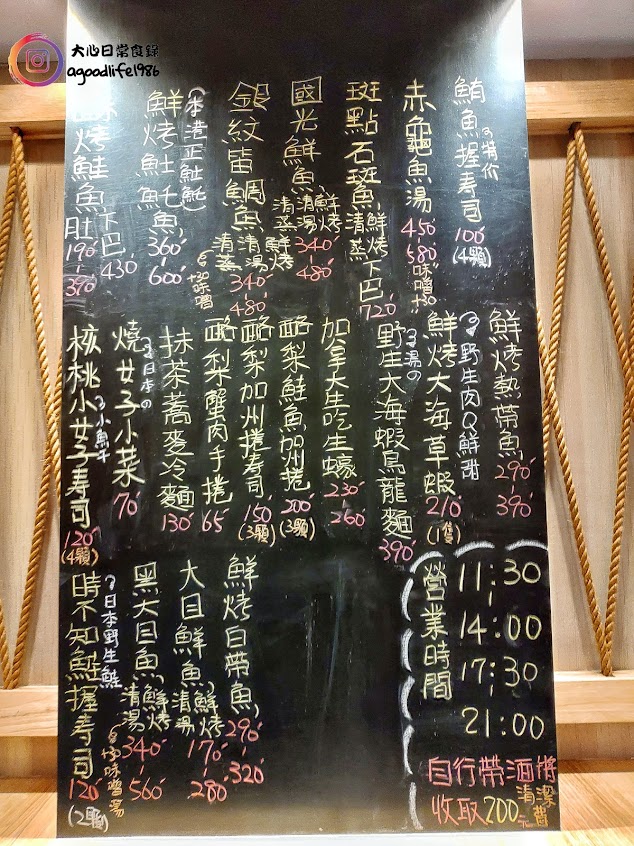 大心日常食録
agoodlife1986
鮪魚握壽司 100 (4顆)
特价
赤龜魚湯 450-580 味噌+30
斑點石斑魚 清蒸 鮮烤 下巴 720
國光鮮魚 清蒸 清湯 鮮烤 340-480
銀紋笛鯛魚 清蒸 清湯 鮮烤 340-480
+30味噌
(本港正魠魠)
鮮烤魠魠魚 360-600
烤鮭魚肚 190-390
下巴 430
鮮烤熱帶魚 290 390
野生肉Q鮮甜
鮮烤大海草蝦 210 (1隻)
湯の
野生大海蝦烏龍麵 390
加拿大生吃生蠔 230 260
酪梨鮭魚加州捲 200 (3顆)
酪梨加州捲壽司 150 (3顆)
酪梨蟹肉手捲 65
抹茶蕎麥冷麵 130
日本の
燒女子小菜 70
小魚干
核桃小女子壽司 120 (4顆)
鮮烤白帶魚 290-320
大目鮮魚 清湯 鮮烤 170-280
黑大目魚 清湯 鮮烤 340-560
+30味噌湯
日本野生鮭
時不知鮭握壽司 120 (2顆)
營業時間
11:30
14:00
17:30
21:00
自行帶酒將
收取200元清潔費